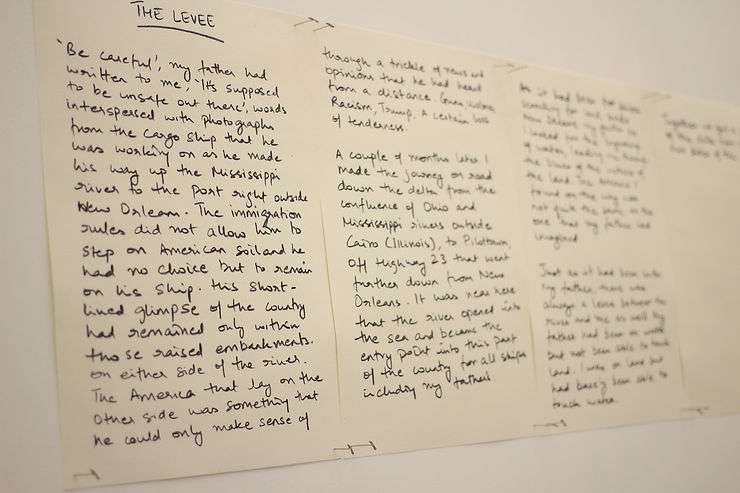 THE LEVEE
'Be careful', my father had
written to me, 'It's supposed
to be unsafe out there', words
interspersed with photographs
from the cargo ship that he
was working on as he made
his way up the Mississippi
river to the port right outside
New Orleans. The immigration
rules did not allow him to
step on American soil and he
had no choice but to remain
on his ship. His short-
lined glimpse of the country
had remained only within
those raised embankments.
on either side of the river.
The America that lay on the
other side was something that
he could only make sense of
through a trickle of news and
opinions that he had heard
from a distance. Guns, Violence
Racism, Trump. A certain loss
of tenderness.
A couple of months later I
made the journey on road
down the delta from the
confluence of Ohio and
Mississippi rivers outside
Cairo (Illinois), to Pilottown,
off Highway 23 that went
further down from New
Orleans. It was near here
that the river opened into
the sea and became the
entry point into this part
of the country for all ships
including my father's
As it had been for
looking for
I looked for the beginning
of water, leading me through
the
the land. The America I
found on the way was
not quite the same as the
one that my father had
imagined
Just as it had been with
my father, there was
always a levee between the
river and me as well. My
father had been on water
but not been able to touch
land. I was on land but
had barely been able to
touch water.
Together
of this